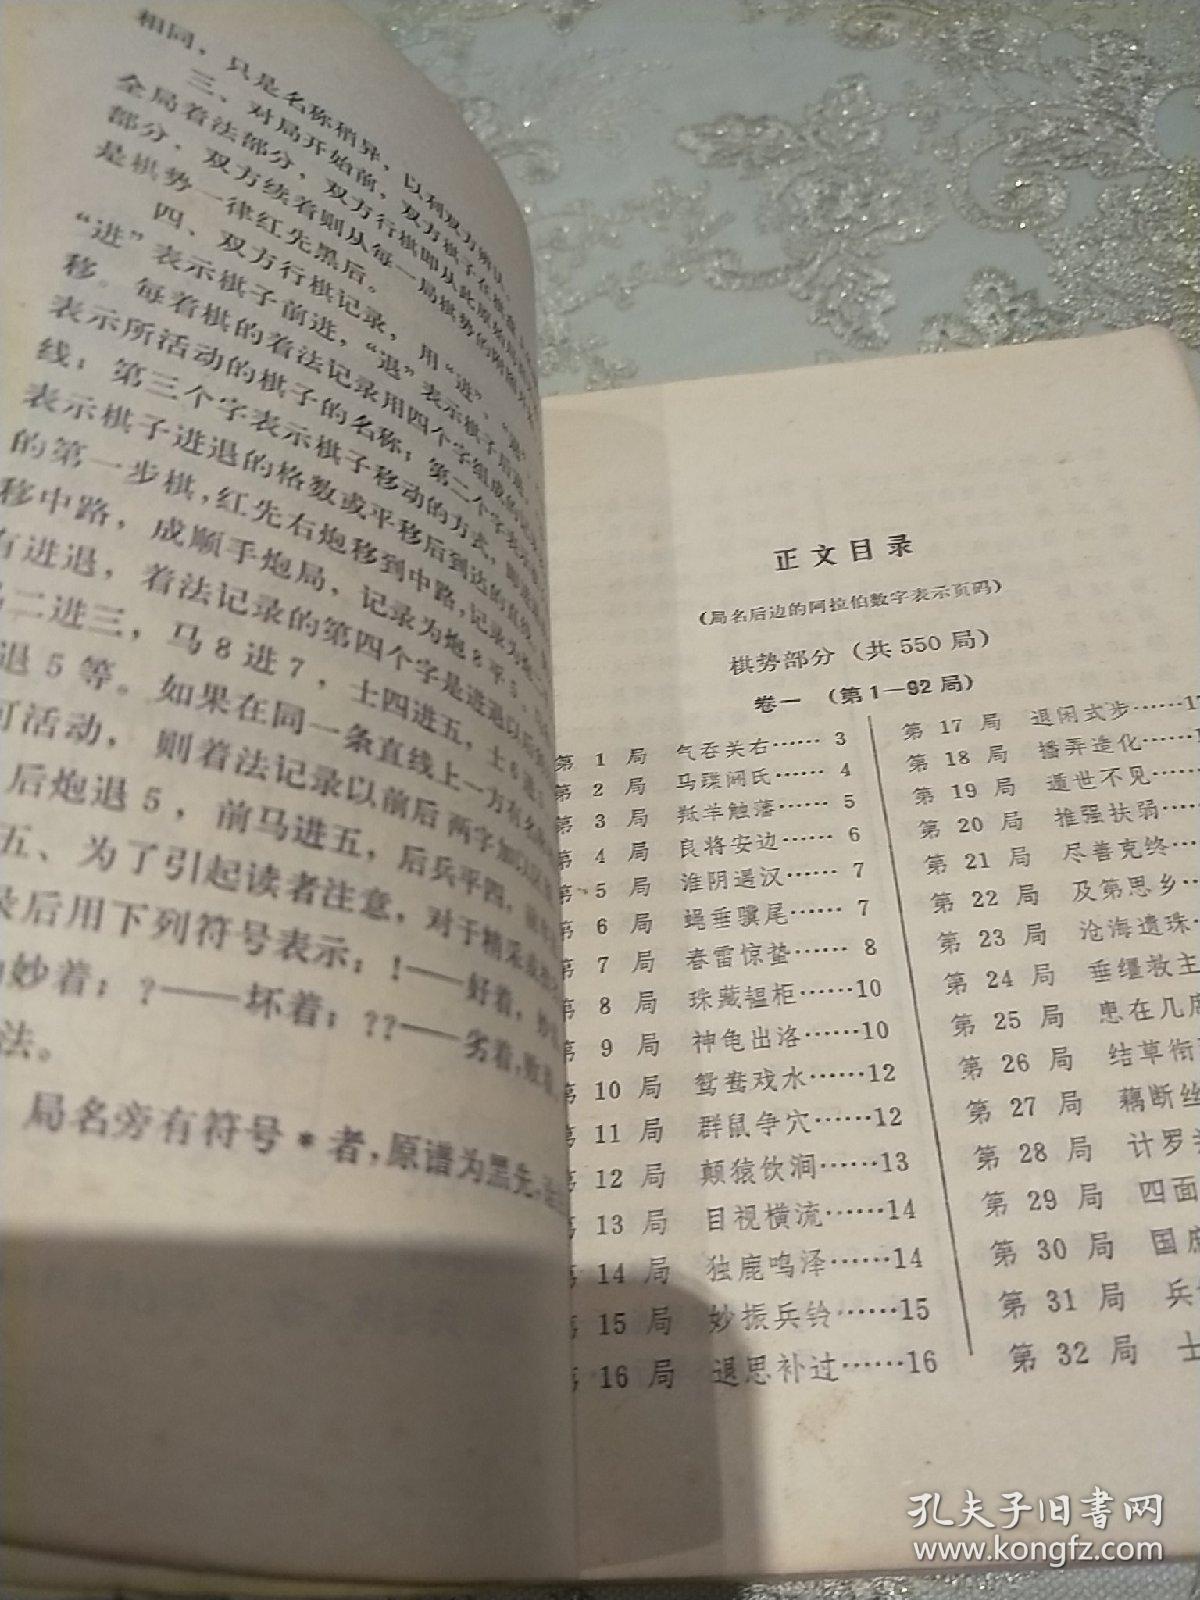 相同，只是名称稍异，以利双方辨认。
三、对局开始前，双方棋子在棋盘
全局着法部分，双方行棋即从此原始局
部分，双方续着则从每一局棋势的
是棋势一律红先黑后。
四、双方行棋记录，用“进”、“退”、
“进”表示棋子前进，“退”表示棋子后退，
移。每着棋的着法记录用四个字组成的
表示所活动的棋子的名称；第二个字表示
线；第三个字表示棋子移动的方式，即
表示棋子进退的格数或平移后到达的直线。
的第一步棋，红先右炮移到中路，记录为炮二
移中路，成顺手炮局，记录为炮8平5，
有进退，着法记录的第四个字是进退以后
二进三，马8进7，士四进五，士6进5
退5等。如果在同一条直线上一方有
可活动，则着法记录以前后两字加以
后炮退5，前马进五，后兵平四，
五、为了引起读者注意，对于精采
录后用下列符号表示：！——好着，妙
妙着；？——坏着；？？——劣着，败着
法。
局名旁有符号＊者，原谱为黑先，
正文目录
（局名后边的阿拉伯数字表示页码）
棋势部分（共550局）
卷一（第1—92局）
第 1 局 气吞关右……3
第 2 局 马蹀阏氏……4
第 3 局 羝羊触藩……5
第 4 局 良将安边……6
第 5 局 淮阴遇汉……7
第 6 局 蝇垂骥尾……7
第 7 局 春雷惊蛰……8
第 8 局 珠藏韫柜……10
第 9 局 神龟出洛……10
第 10 局 鸳鸯戏水……12
第 11 局 群鼠争穴……12
第 12 局 颠猿饮涧……13
第 13 局 目视横流……14
第 14 局 独鹿鸣泽……14
第 15 局 妙振兵铃……15
第 16 局 退思补过……16
第 17 局 退闲式步……17
第 18 局 播弄造化……1
第 19 局 遁世不见……
第 20 局 推强扶弱……
第 21 局 尽善克终…
第 22 局 及第思乡…
第 23 局 沧海遗珠
第 24 局 垂缰救主
第 25 局 患在几席
第 26 局 结草衔
第 27 局 藕断丝
第 28 局 计罗
第 29 局 四面
第 30 局 国
第 31 局 兵
第 32 局 士
孔夫子旧书网
www.kongfz.com